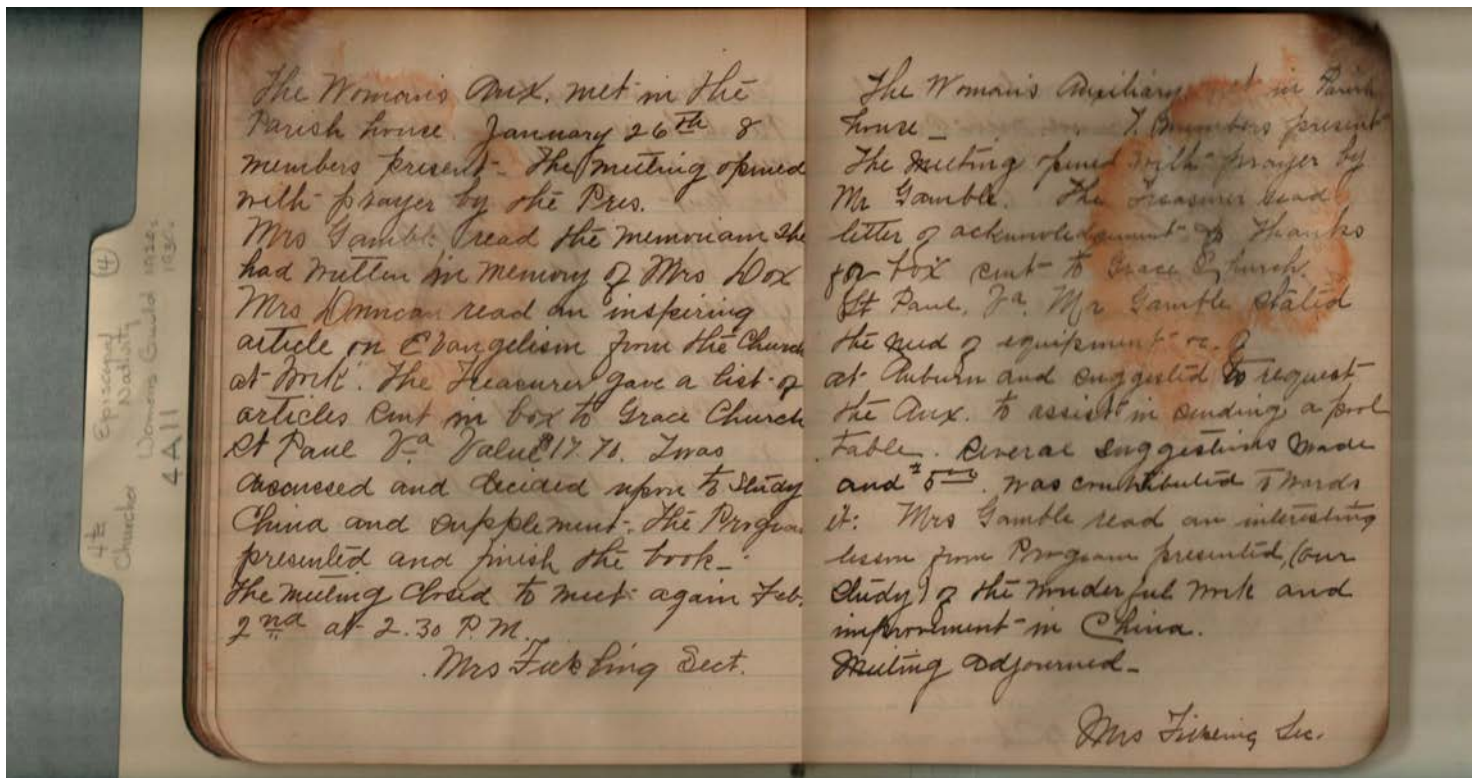 4th Episcopal (4)
Churches Nativity
Womens Guild 1920s
1930s
4A11
The Woman's Aux. met in the
Parish house. January 26th 8
members present - The meeting opened
with prayer by the Pres.
Mrs Gamble read the memoriam she
had written in memory of Mrs Dox
Mrs Duncan read an inspiring
article on Evangelism from the Church
at Work. The Treasurer gave a list of
articles sent in box to Grace Church
St Paul Va. Value $17.70. Twas
discussed and decided upon to study
China and supplement - the Program
presented and finish the book -
The meeting closed to meet again Feb.
2nd at 2.30 P.M.
Mrs Fickling Sect.
The Woman's Auxiliary met in Parish
house - 7 members present
The meeting opened with prayer by
Mr Gamble. The Treasurer read
letter of acknowledgement of Thanks
for box sent to Grace Church.
St Paul, Va. Mr Gamble stated
the need of equipment
at Auburn and suggested to request
the Aux. to assist in sending a pool
table. Several suggestions made
and $5.00 was contributed towards
it: Mrs Gamble read an interesting
lesson from Program presented, (our
study) of the wonderful work and
improvement in China.
Meeting adjourned -
Mrs Fickling Sec.